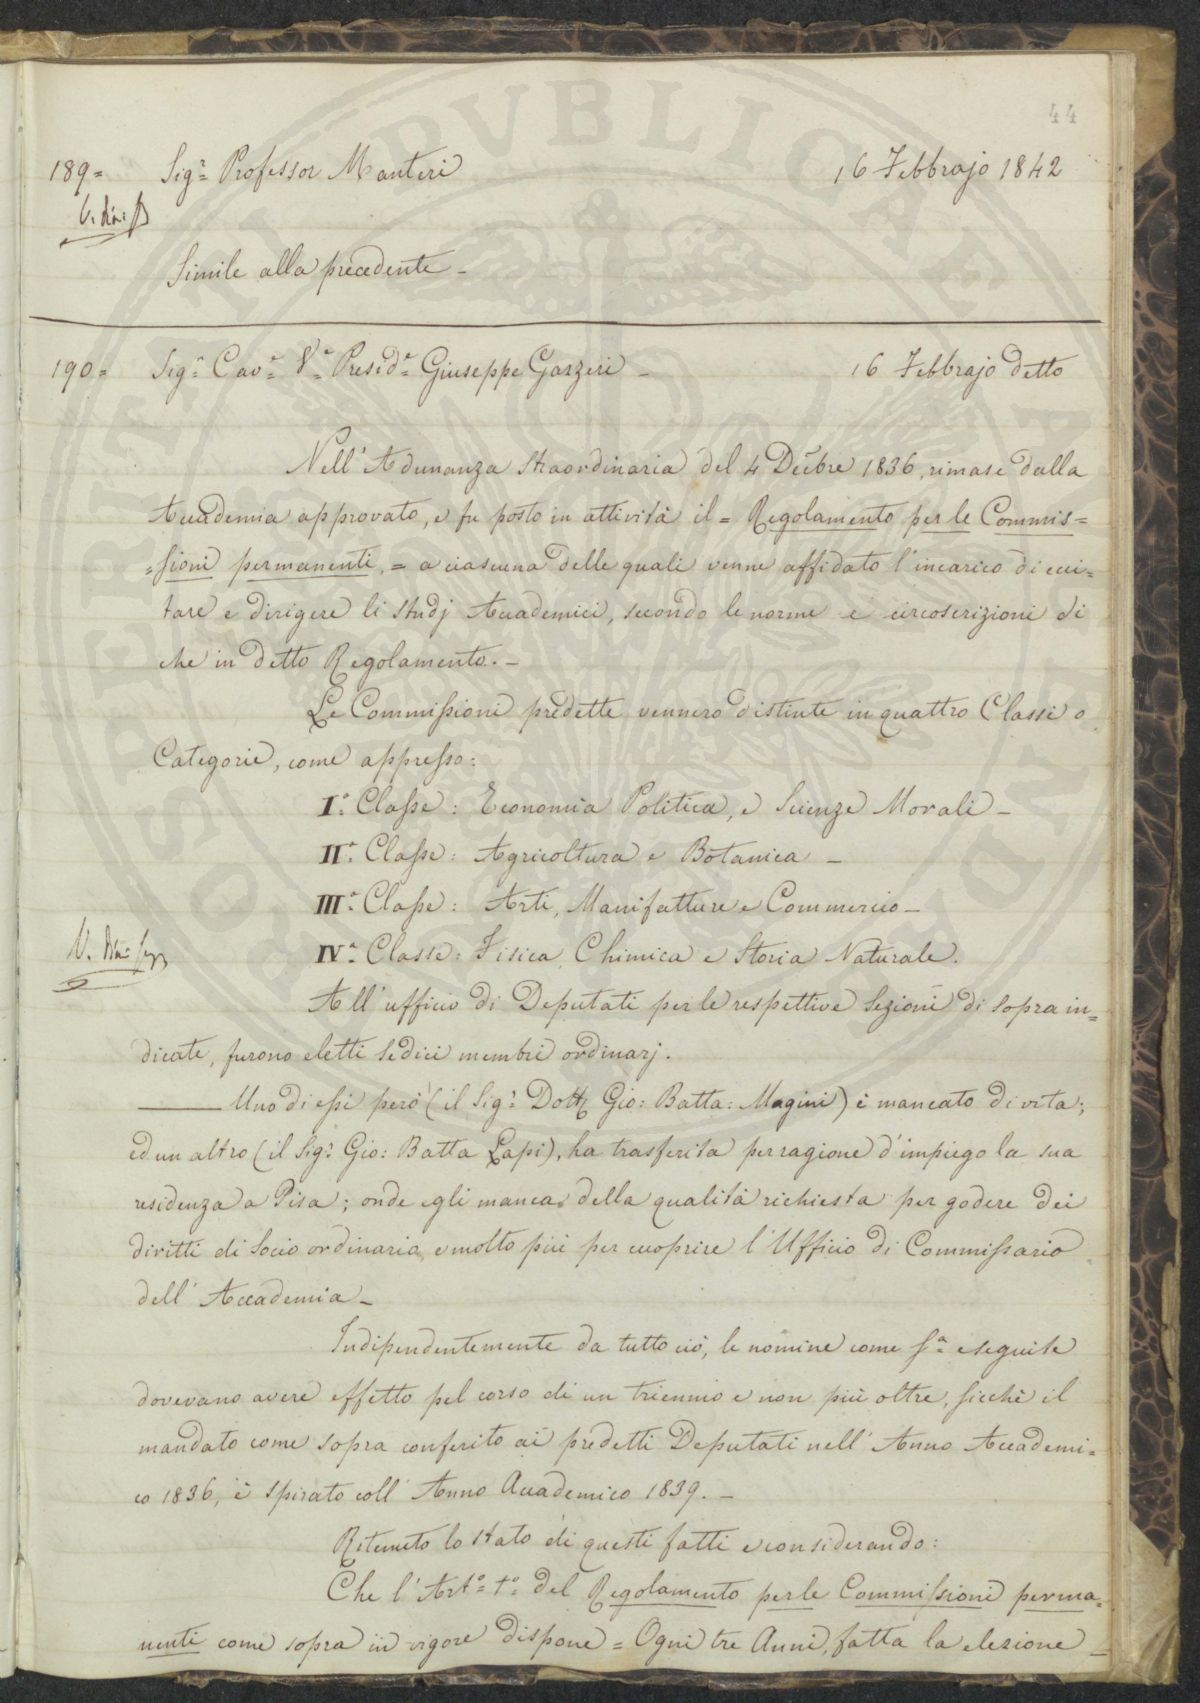 44
189= Sigr. Professor Manteri 16 Febbrajo 1842
Simile alla precedente -
190= Sigr. Cavre. Ve. Preside. Giuseppe Garzeri - 16 Febbrajo detto
Nell' Adunanza Straordinaria del 4 Decbre 1836, rimase dalla
Accademia approvato, e fu posto in attività il = Regolamento per le Commis=
=sioni permanenti, = a ciascuna delle quali venne affidato l'incarico di ecci-
tare e dirigere li studj Accademici, secondo le norme e circoscrizioni di
che in detto Regolamento. -
Le Commissioni predette vennero distinte in quattro Classi o
Categorie, come appresso:
Ia. Classe: Economia Politica, e Scienze Morali -
IIa. Classe: Agricoltura e Botanica -
IIIa. Classe: Arti, Manifatture e Commercio -
IVa. Classe: Fisica, Chimica e Storia Naturale.
All' ufficio di Deputati per le respettive Sezioni di sopra in=
dicate, furono eletti Sedici membri ordinarj.
Uno di essi però (il Sigr. Dott. Gio: Batta: Magini) è mancato di vita;
ed un altro (il Sigr. Gio: Batta Lapi), ha trasferita per ragione d'impiego la sua
residenza a Pisa; onde egli manca della qualità richiesta per godere dei
diritti di Socio ordinario, e molto più per cuoprire l'Ufficio di Commissario
dell' Accademia -
Indipendentemente da tutto ciò, le nomine come sa. eseguite
dovevano avere effetto pel corso di un triennio e non più oltre, sicchè il
mandato come sopra conferito ai predetti Deputati nell' Anno Accademi=
co 1836, è spirato coll' Anno Accademico 1839. -
Ritenuto lo stato di questi fatti e considerando:
Che l'Arto. 1o. del Regolamento per le Commissioni perma=
nenti come sopra in vigore dispone = Ogni tre Anni, fatta la elezione
SOSPERITATI PVBLICAE AVGENDAE